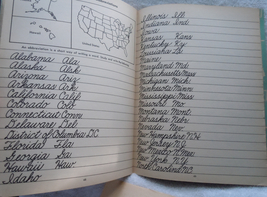 An abbreviation is a short way of writing
Alabama Ala
Alaska Alsk
Arizona Ariz
Arkansas Ark
California Calif
Colorado Colo
Connecticut Conn
Delaware Del
District of Columbia D.C.
Florida Fla
Georgia Ga
Hawaii Haw
Idaho
Illinois Ill
Indiana Ind
Iowa
Kansas Kans
Kentucky Ky
Louisiana La
Maine
Maryland Md
Massachusetts Mass
Michigan Mich
Minnesota Minn
Mississippi Miss
Missouri Mo
Montana Mont
Nebraska Nebr
Nevada Nev
New Hampshire N.H.
New Jersey N.J.
New Mexico N.M.
New York N.Y.
North Carolina N.C.